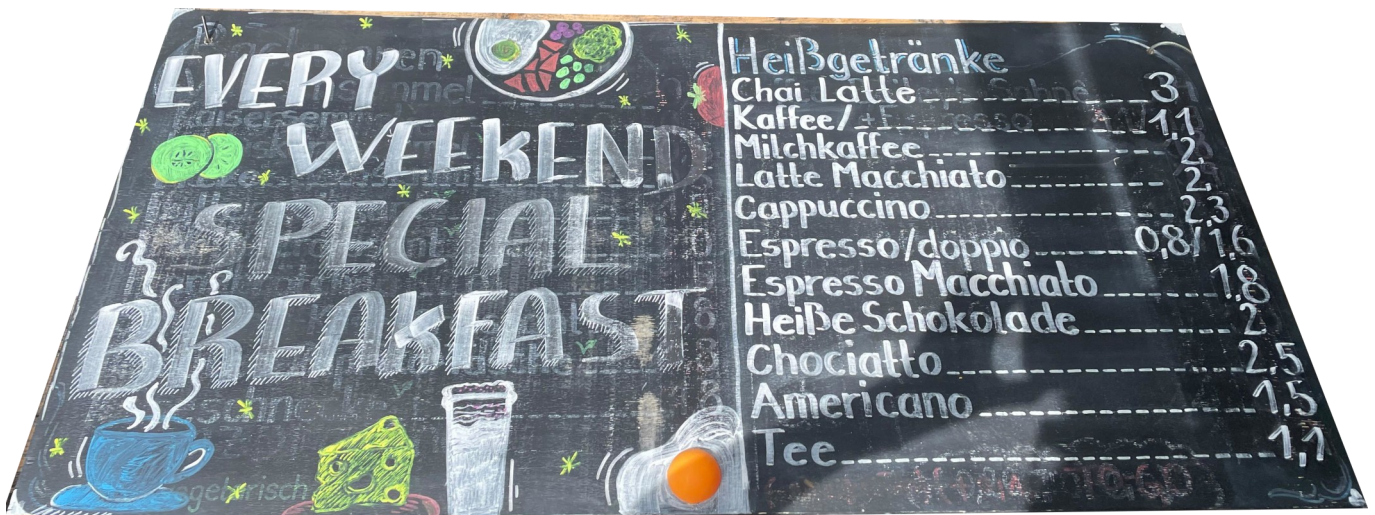 EVERY
WEEKEND
SPECIAL
BREAKFAST
Heißgetränke
Chai Latte 3
Kaffee/ 1,1
Milchkaffee 2,
Latte Macchiato 2,
Cappuccino 2,3
Espresso/doppio 0,8/1,6
Espresso Macchiato 1,8
Heiße Schokolade 2,
Chociatto 2,5
Americano 1,5
Tee 1,1